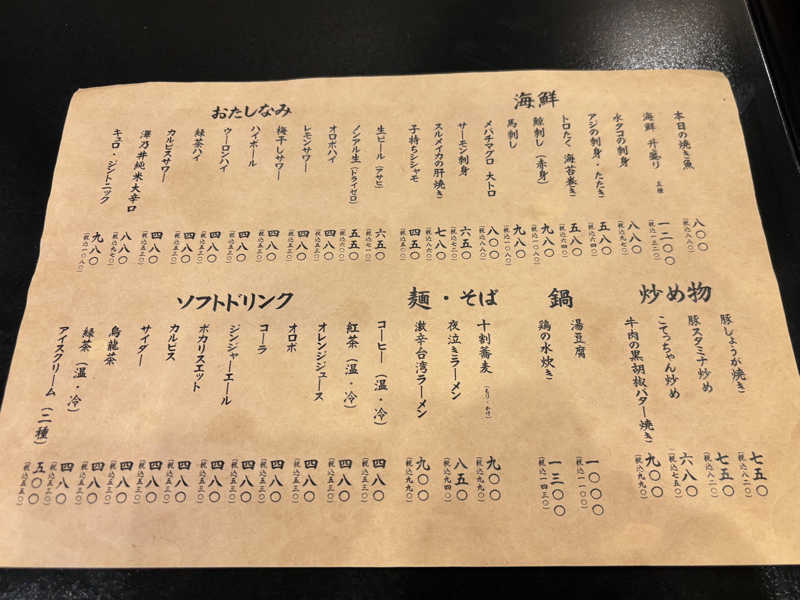 海鮮
本日の焼き魚 八〇〇 (税込八八〇)
海鮮 舟盛り 五種 一二〇〇 (税込一三二〇)
水タコの刺身 八八〇 (税込九七〇)
アジの刺身・たたき 五八〇 (税込六四〇)
トロたく 海苔巻き 五八〇 (税込六四〇)
鯨刺し(赤身) 九八〇 (税込一〇八〇)
馬刺し 九八〇 (税込一〇八〇)
メバチマグロ 大トロ 八〇〇 (税込八八〇)
サーモン刺身 六五〇 (税込七二〇)
スルメイカの肝焼き 七八〇 (税込八六〇)
子持ちシシャモ 四五〇 (税込五〇〇)
おたしなみ
生ビール(アサヒ) 六五〇 (税込七一〇)
ノンアル生(ドライゼロ) 五五〇 (税込六〇〇)
オロポハイ 四八〇 (税込五三〇)
レモンサワー 四八〇 (税込五三〇)
梅干しサワー 四八〇 (税込五三〇)
ハイボール 四八〇 (税込五三〇)
ウーロンハイ 四八〇 (税込五三〇)
緑茶ハイ 四八〇 (税込五三〇)
カルピスサワー 四八〇 (税込五三〇)
澤乃井純米大辛口 八八〇 (税込九七〇)
キュロ・ジントニック 九八〇 (税込一〇八〇)
炒め物
豚しょうが焼き 七五〇 (税込八二〇)
豚スタミナ炒め 七五〇 (税込八二〇)
こてっちゃん炒め 六八〇 (税込七五〇)
牛肉の黒胡椒バター焼き 九〇〇 (税込九九〇)
鍋
湯豆腐 一〇〇〇 (税込一一〇〇)
鶏の水炊き 一三〇〇 (税込一四三〇)
麺・そば
十割蕎麦(もり・かけ) 九〇〇 (税込九九〇)
夜泣きラーメン 八五〇 (税込九四〇)
激辛台湾ラーメン 九〇〇 (税込九九〇)
ソフトドリンク
コーヒー(温・冷) 四八〇 (税込五三〇)
紅茶(温・冷) 四八〇 (税込五三〇)
オレンジジュース 四八〇 (税込五三〇)
オロポ 四八〇 (税込五三〇)
コーラ 四八〇 (税込五三〇)
ジンジャーエール 四八〇 (税込五三〇)
ポカリスエット 四八〇 (税込五三〇)
カルピス 四八〇 (税込五三〇)
サイダー 四八〇 (税込五三〇)
烏龍茶 四八〇 (税込五三〇)
緑茶(温・冷) 四八〇 (税込五三〇)
アイスクリーム(二種) 五〇〇 (税込五五〇)